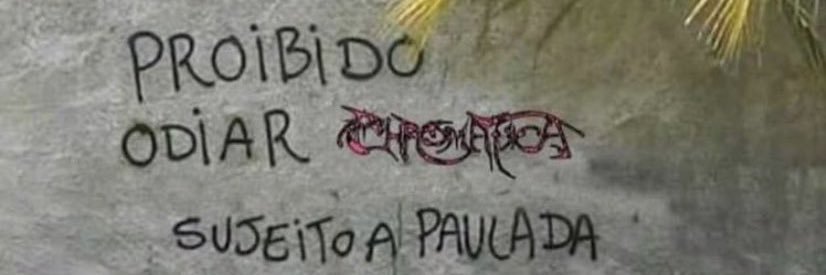 PROIBIDO
ODIAR CHROMATICA
SUJEITO A PAULADA